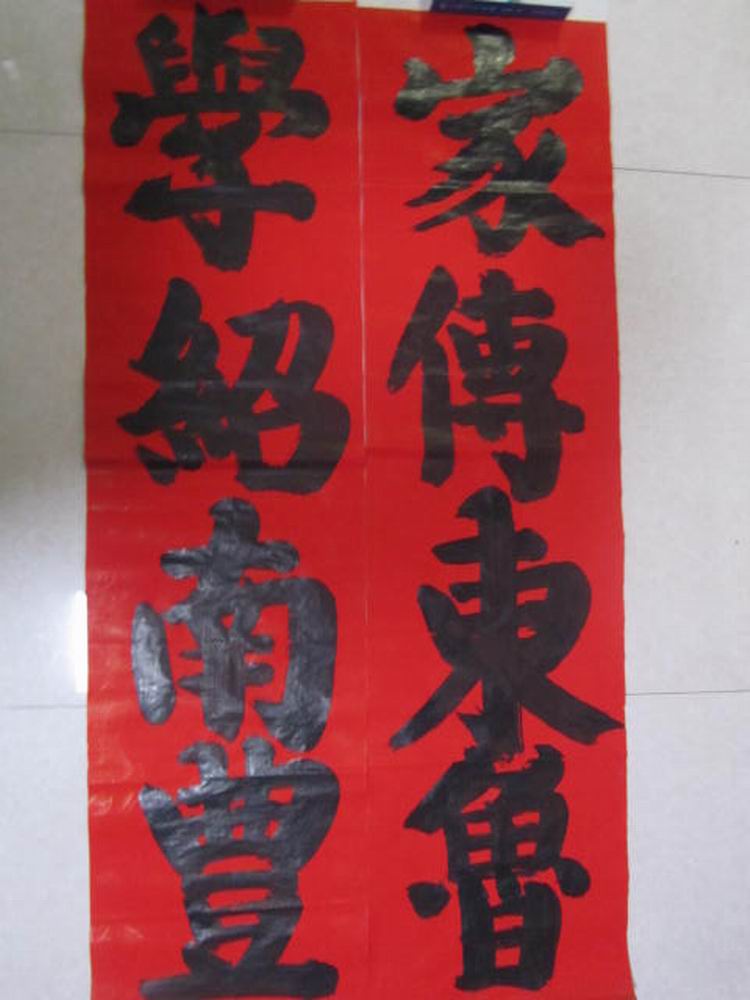 家傳東魯
學紹南豐